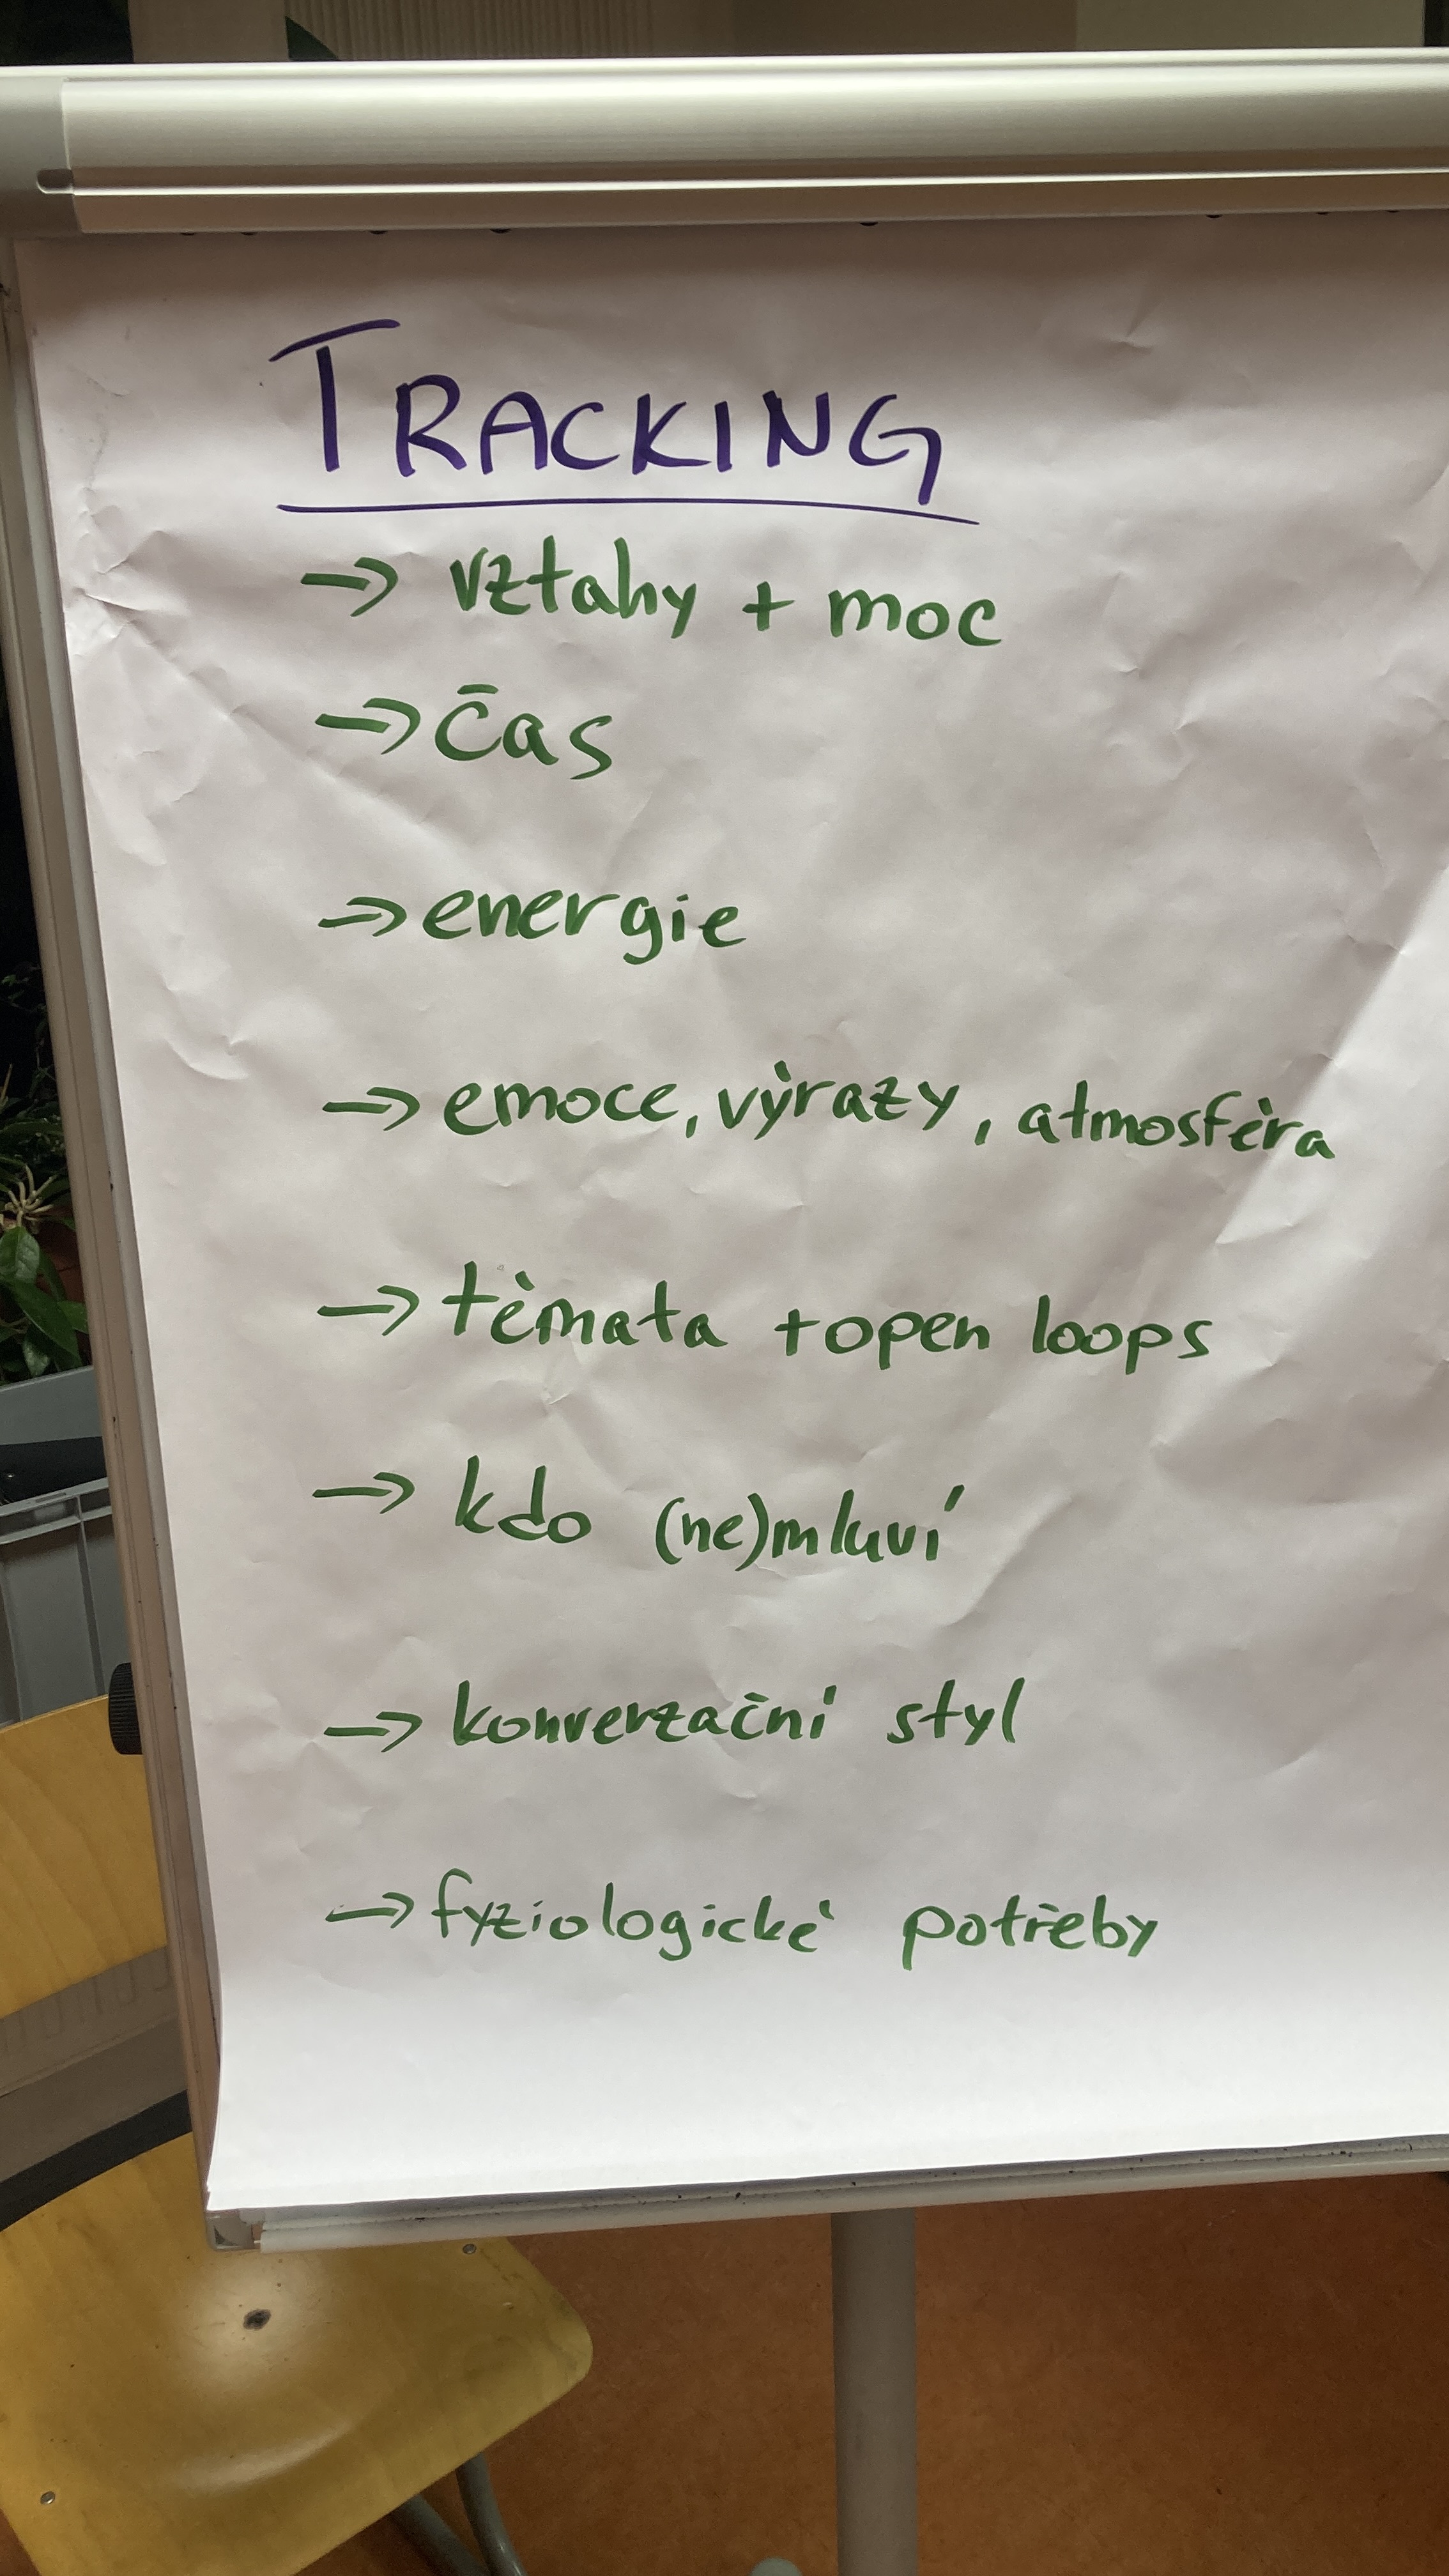 TRACKING
→ vztahy + moc
→ čas
→ energie
→ emoce, výrazy, atmosféra
→ témata + open loops
→ kdo (ne)mluví
→ konverzační styl
→ fyziologické potřeby